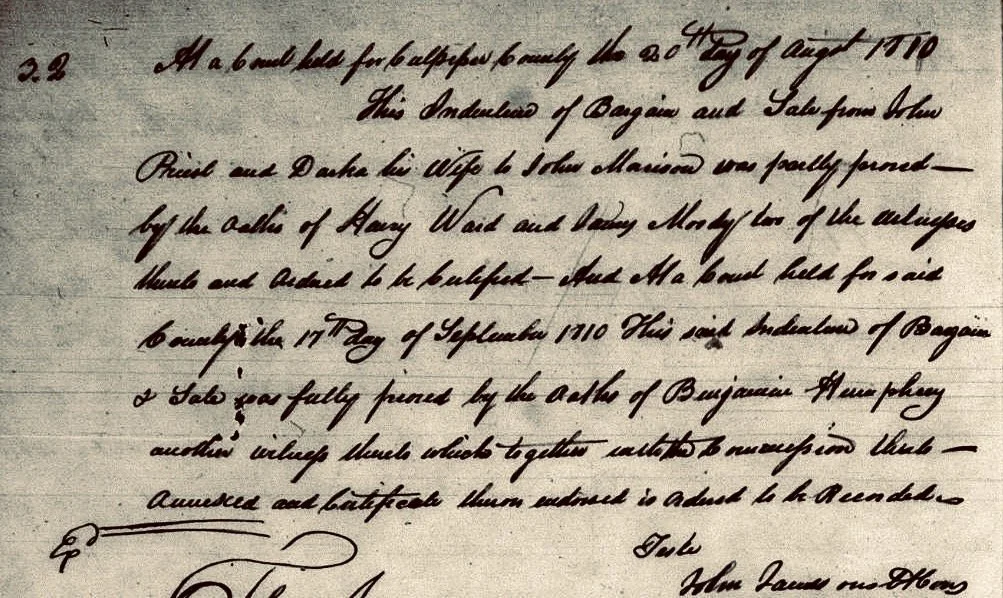 3.2 At a Court held for Culpeper County the 20th Day of Augst 1810
This Indenture of Bargain and Sale from John
Priest and Darka his Wife to John Marison was partly proved —
by the oaths of Harry Ward and James Moody two of the witnesses
thereto and ordered to be Certified — And At a Court held for said
County the 17th Day of September 1810 This said Indenture of Bargain
& Sale was fully proved by the oaths of Benjamin Humphrey
another witness thereto which together with the Commission thereto —
Annexed and Certificate thereon endorsed is ordered to be Recorded
Exd
Teste
John